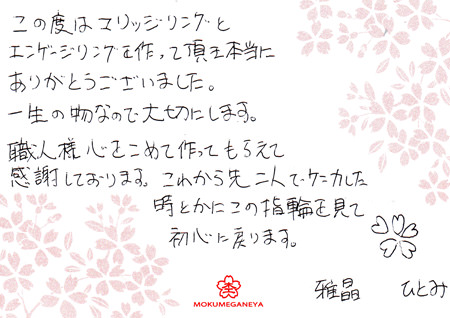 この度はマリッジリングと
エンゲージリングを作って頂き本当に
ありがとうございました。
一生の物なので大切にします。
職人様心をこめて作ってもらえて
感謝しております。これから先二人でケンカした
時とかにこの指輪を見て
初心に戻ります。
雅晶 ひとみ
MOKUMEGANEYA